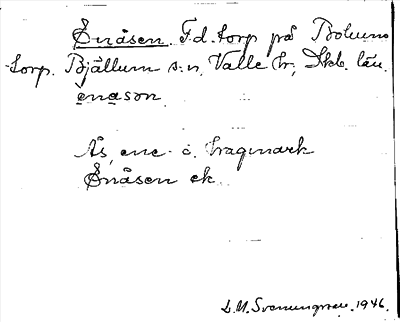 Enåsen. F.d. torp på Bolums
torp. Bjällum s:n, Valle hr, Skb. län.
enason
Ås, ene- o. hagmark
Enåsen ek.
L.M. Svenungsson. 1946.